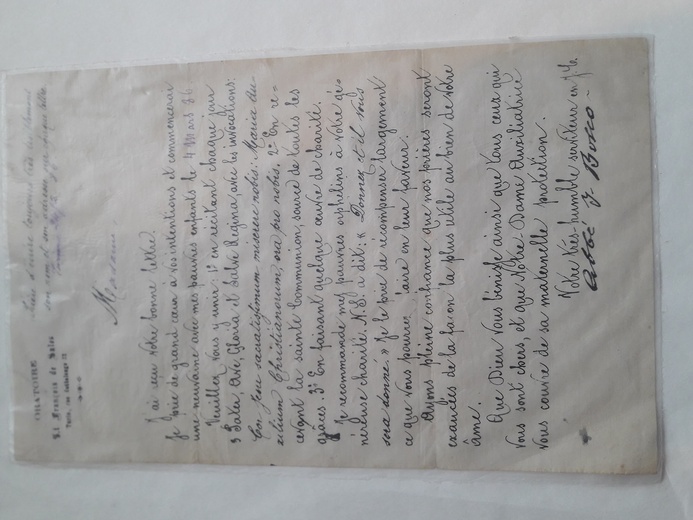 ORATOIRE
St François de Sales
Turin, rue Cottolengo 32
J'ai reçu votre bonne lettre.
Je prie de grand cœur à vos intentions et commencerai
une neuvaine avec mes pauvres enfants le 4 Mars 86
Veuillez vous y unir: 1° en récitant chaque jour
3 Pater, Ave, Gloria et Salve Regina, avec les invocations:
Cor Jesu sacratissimum miserere nobis. Maria Au-
xilium Christianorum, ora pro nobis. 2° En re-
cevant la sainte Communion, source de toutes les
grâces. 3° En faisant quelque œuvre de charité.
Je recommande mes pauvres orphelins à votre gé-
néreuse charité. N.S. a dit: « Donnez et il vous
sera donné. » Je le prie de récompenser largement
ce que vous pourrez faire en leur faveur.
Ayons pleine confiance que nos prières seront
exaucées de la façon la plus utile au bien de votre
âme.
Que Dieu vous bénisse ainsi que tous ceux qui
vous sont chers, et que Notre-Dame Auxiliatrice
vous couvre de sa maternelle protection.
Votre très-humble serviteur en J.C.
Abbé J. Bosco